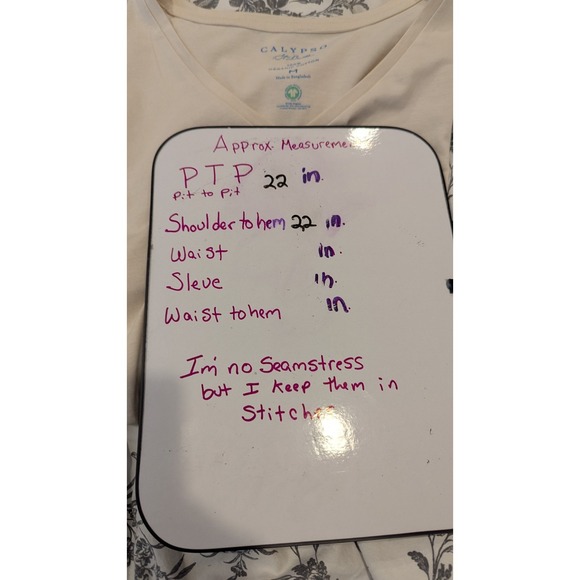 CALYPSO
M
Approx. Measureme
PTP 22 in.
Pit to Pit
Shoulder to hem 22 in.
Waist in.
Sleve in.
Waist to hem in.
I'm no Seamstress
but I Keep them in
Stitches